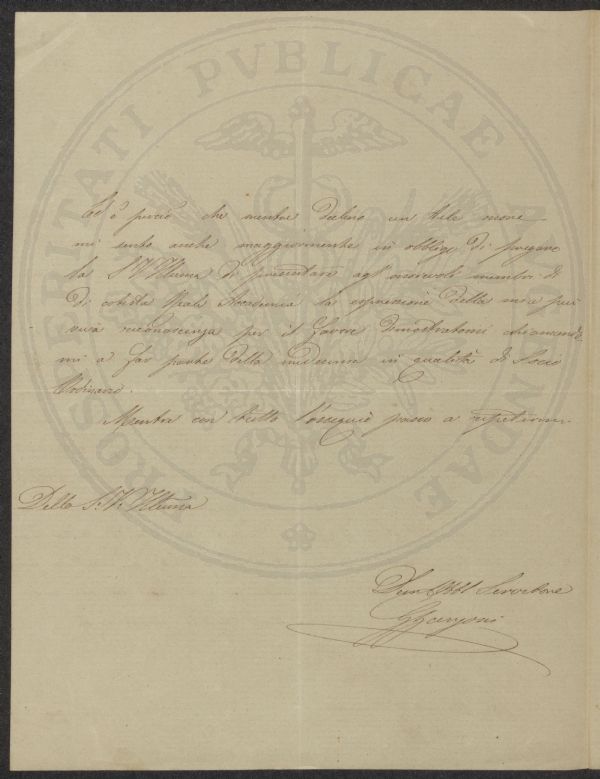 PROSPERITATI PVBLICAE AVGENDAE
Ed è perciò che mentre declino un tale onore
mi sento anche maggiormente in obbligo di pregare
la S.V. Illma di presentare agl'onorevoli membri di
di cotesta Reale Accademia la espressione della mia più
viva riconoscenza per il favore dimostratomi chiamando
mi a far parte della medesima in qualità di Socio
Ordinario.
Mentre con tutto l'ossequio passo a ripetermi
Della S.V. Illma
Devm Obbl Servitore